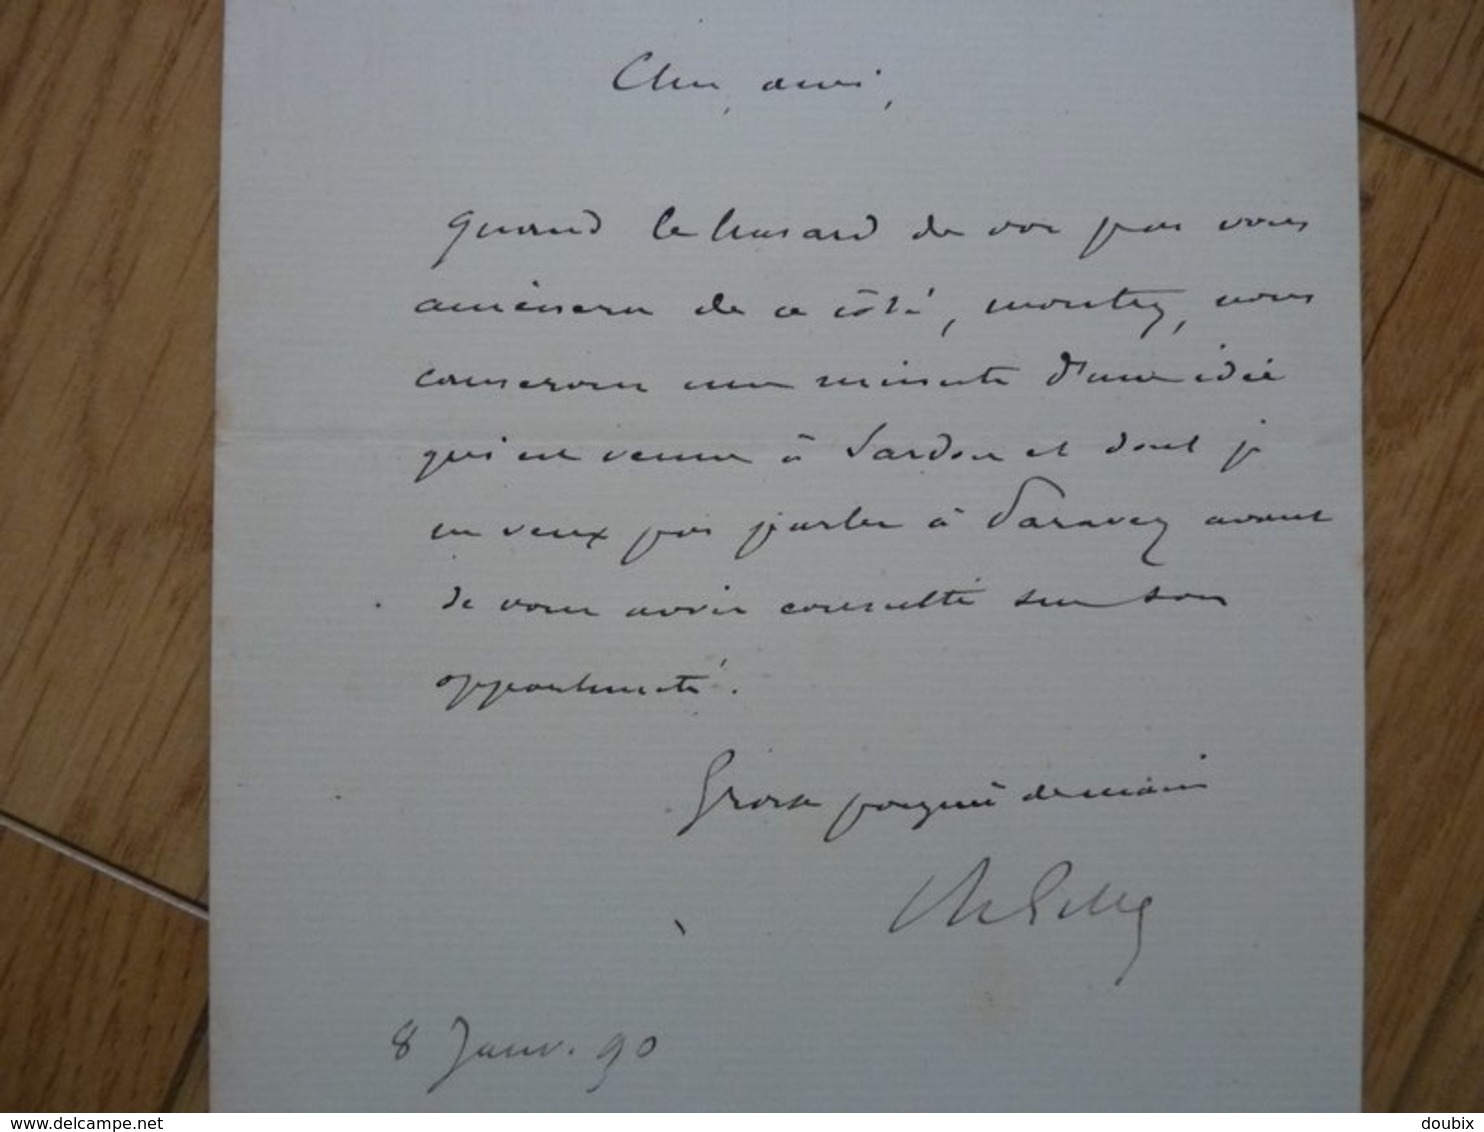 Cher ami,
Quand le hasard de vos pas vous
amènera de ce côté, montez, nous
causerons une minute d'une idée
qui est venue à Sardou et dont je
ne veux pas parler à Paravey avant
de vous avoir consulté sur son
opportunité.
Grosse poignée de main
8 Janv. 90
www.delcampe.net
doubix